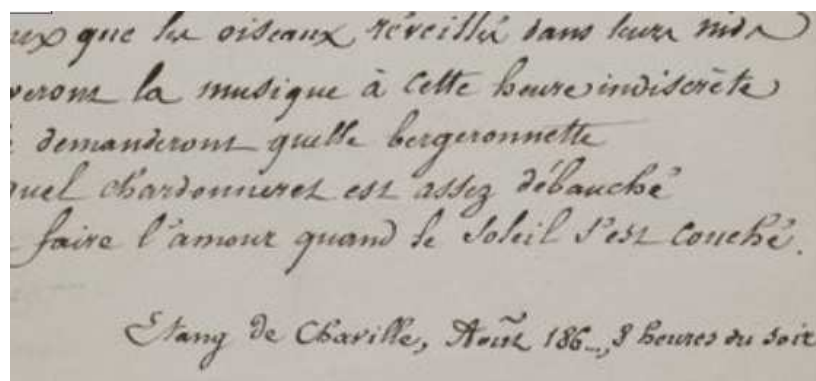 que les oiseaux réveillés dans leurs nids
la musique à cette heure indiscrète
demanderont quelle bergeronnette
chardonneret est assez débauché
faire l'amour quand le soleil s'est couché.
Etang de Chaville, Août 186_, 8 heures du soir